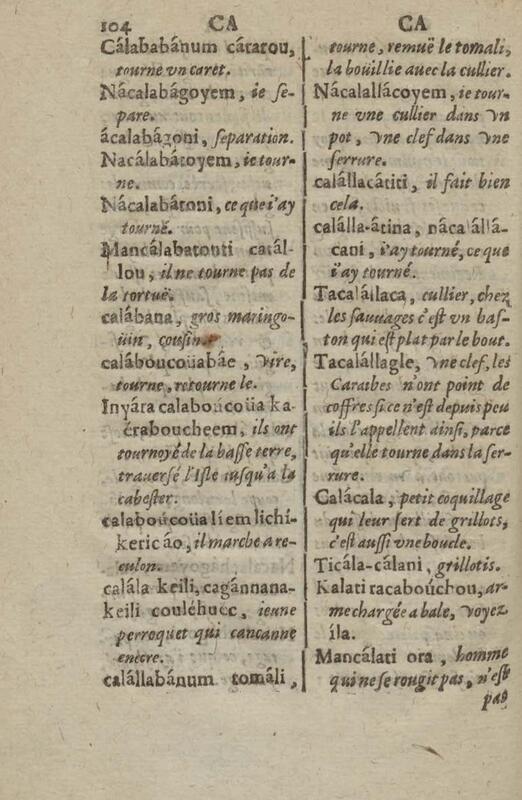 104 CA CA
Cálababánum cátatou,
tourne vn caret.
Nácalabágoyem, ie se-
pare.
ácalabágoni, separation.
Nacálabátoyem, ie tour-
ne.
Nácalabátoni, ce que i'ay
tourné.
Mancálabatonti catál-
lou, il ne tourne pas de
la tortuë.
calábana, gros maringo-
üin, cousin.
caláboucoüabáe, vire,
tourne, retourne le.
Inyára calaboúcoüa ka-
éraboucheem, ils ont
tournoyé de la basse terre,
trauersé l'Isle iusqu'a la
cabester.
calaboucoüa lí em lichí-
keric áo, il marche a re-
culon.
calála keili, cagánnana-
keili couléhuec, ieune
perroquet qui cancanne
encre.
calállabánum tomáli,
tourne, remuë le tomali,
la boüillie auec la cullier.
Nácalallácoyem, ie tour-
ne vne cullier dans vn
pot, vne clef dans vne
serrure.
calállacátiti, il fait bien
cela.
calálla-átina, náca állá-
cani, i'ay tourné, ce que
i'ay tourné.
Tacalállaca, cullier, chez
les sauuages c'est vn bas-
ton qui est plat par le bout.
Tacalállagle, vne clef, les
Caraibes n'ont point de
coffres si ce n'est depuis peu
ils l'appellent ainsi, parce
qu'elle tourne dans la ser-
rure.
Calácala, petit coquillage
qui leur sert de grillots,
c'est aussi vne boucle.
Ticála-cálani, grillotis.
Kalati racaboúchou, ar-
me chargée a bale, voyez
íla.
Mancálati ora, homme
qui ne se rougit pas, n'est
pas